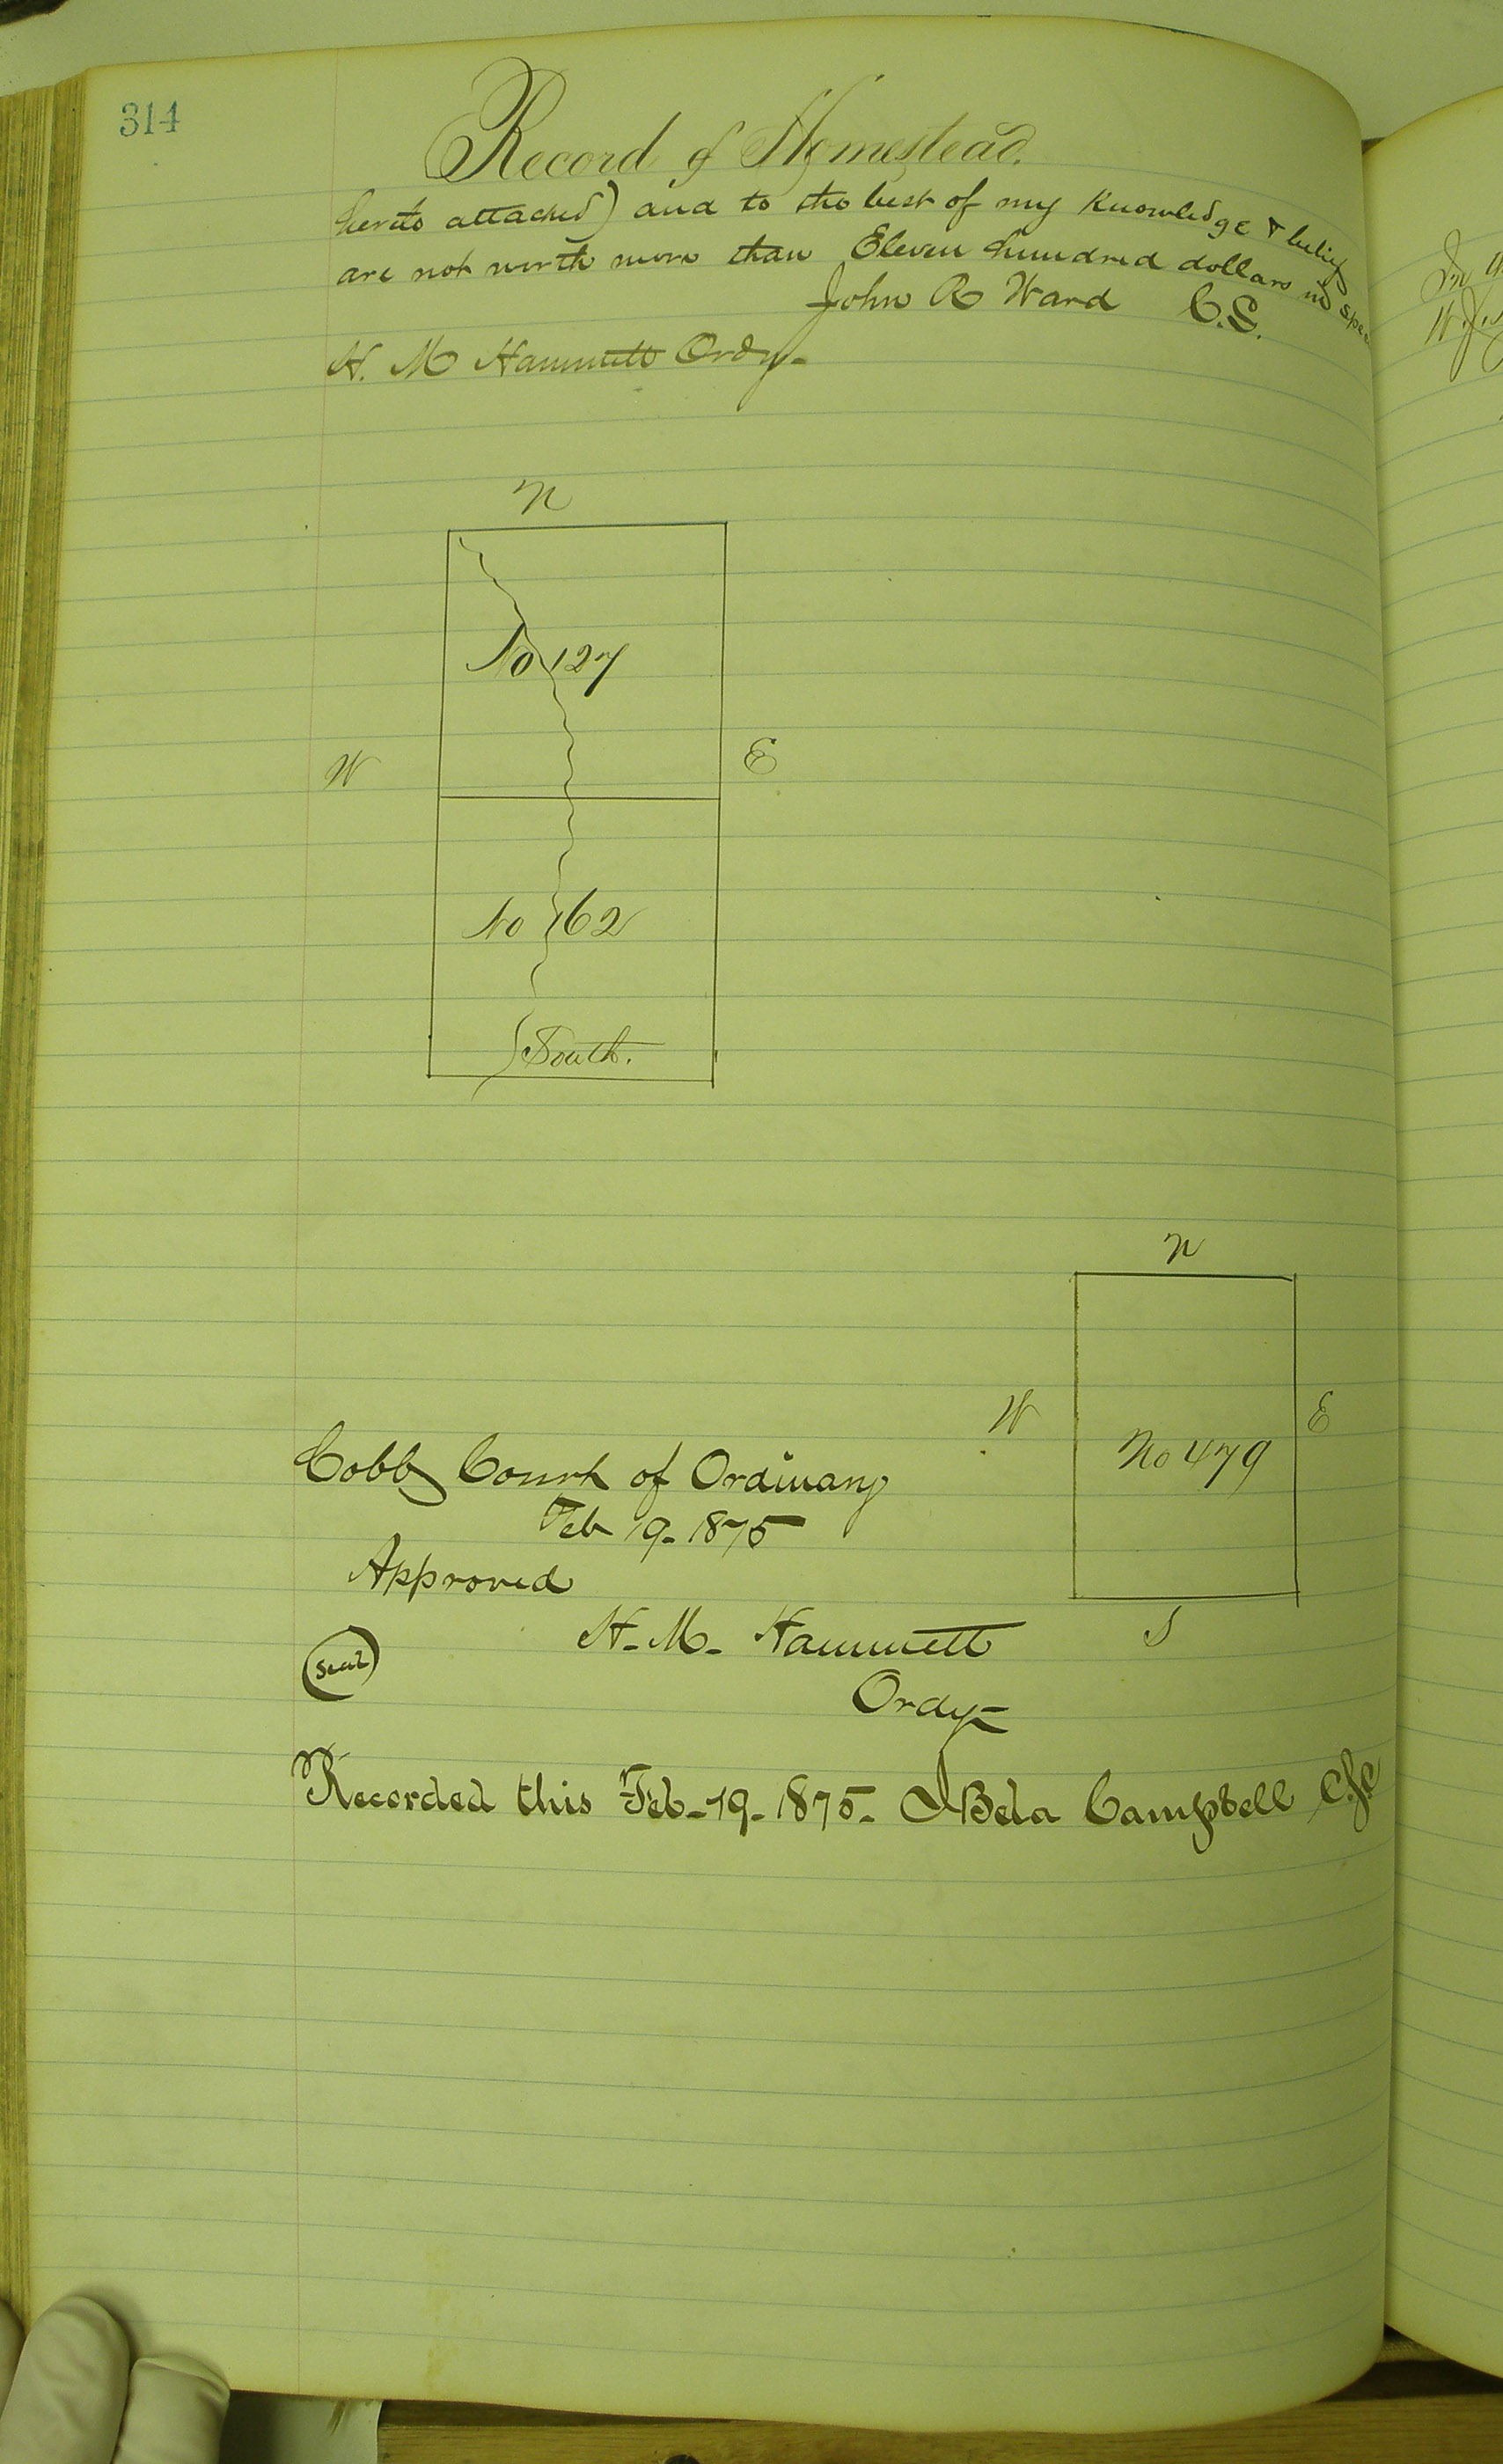 314
Record of Homestead.
hereto attached) and to the best of my Knowledge & belief
are not worth more than Eleven hundred dollars in spe
John R Ward C.S.
H. M Hammett Ordy-
N
No 127
W
E
No 162
South.
N
W
E
No 479
Cobb Court of Ordinary
Feb 19- 1875
Approved
S
H- M- Hammett
Seal
Ordy-
Recorded this Feb-19-1875- J Bela Campbell